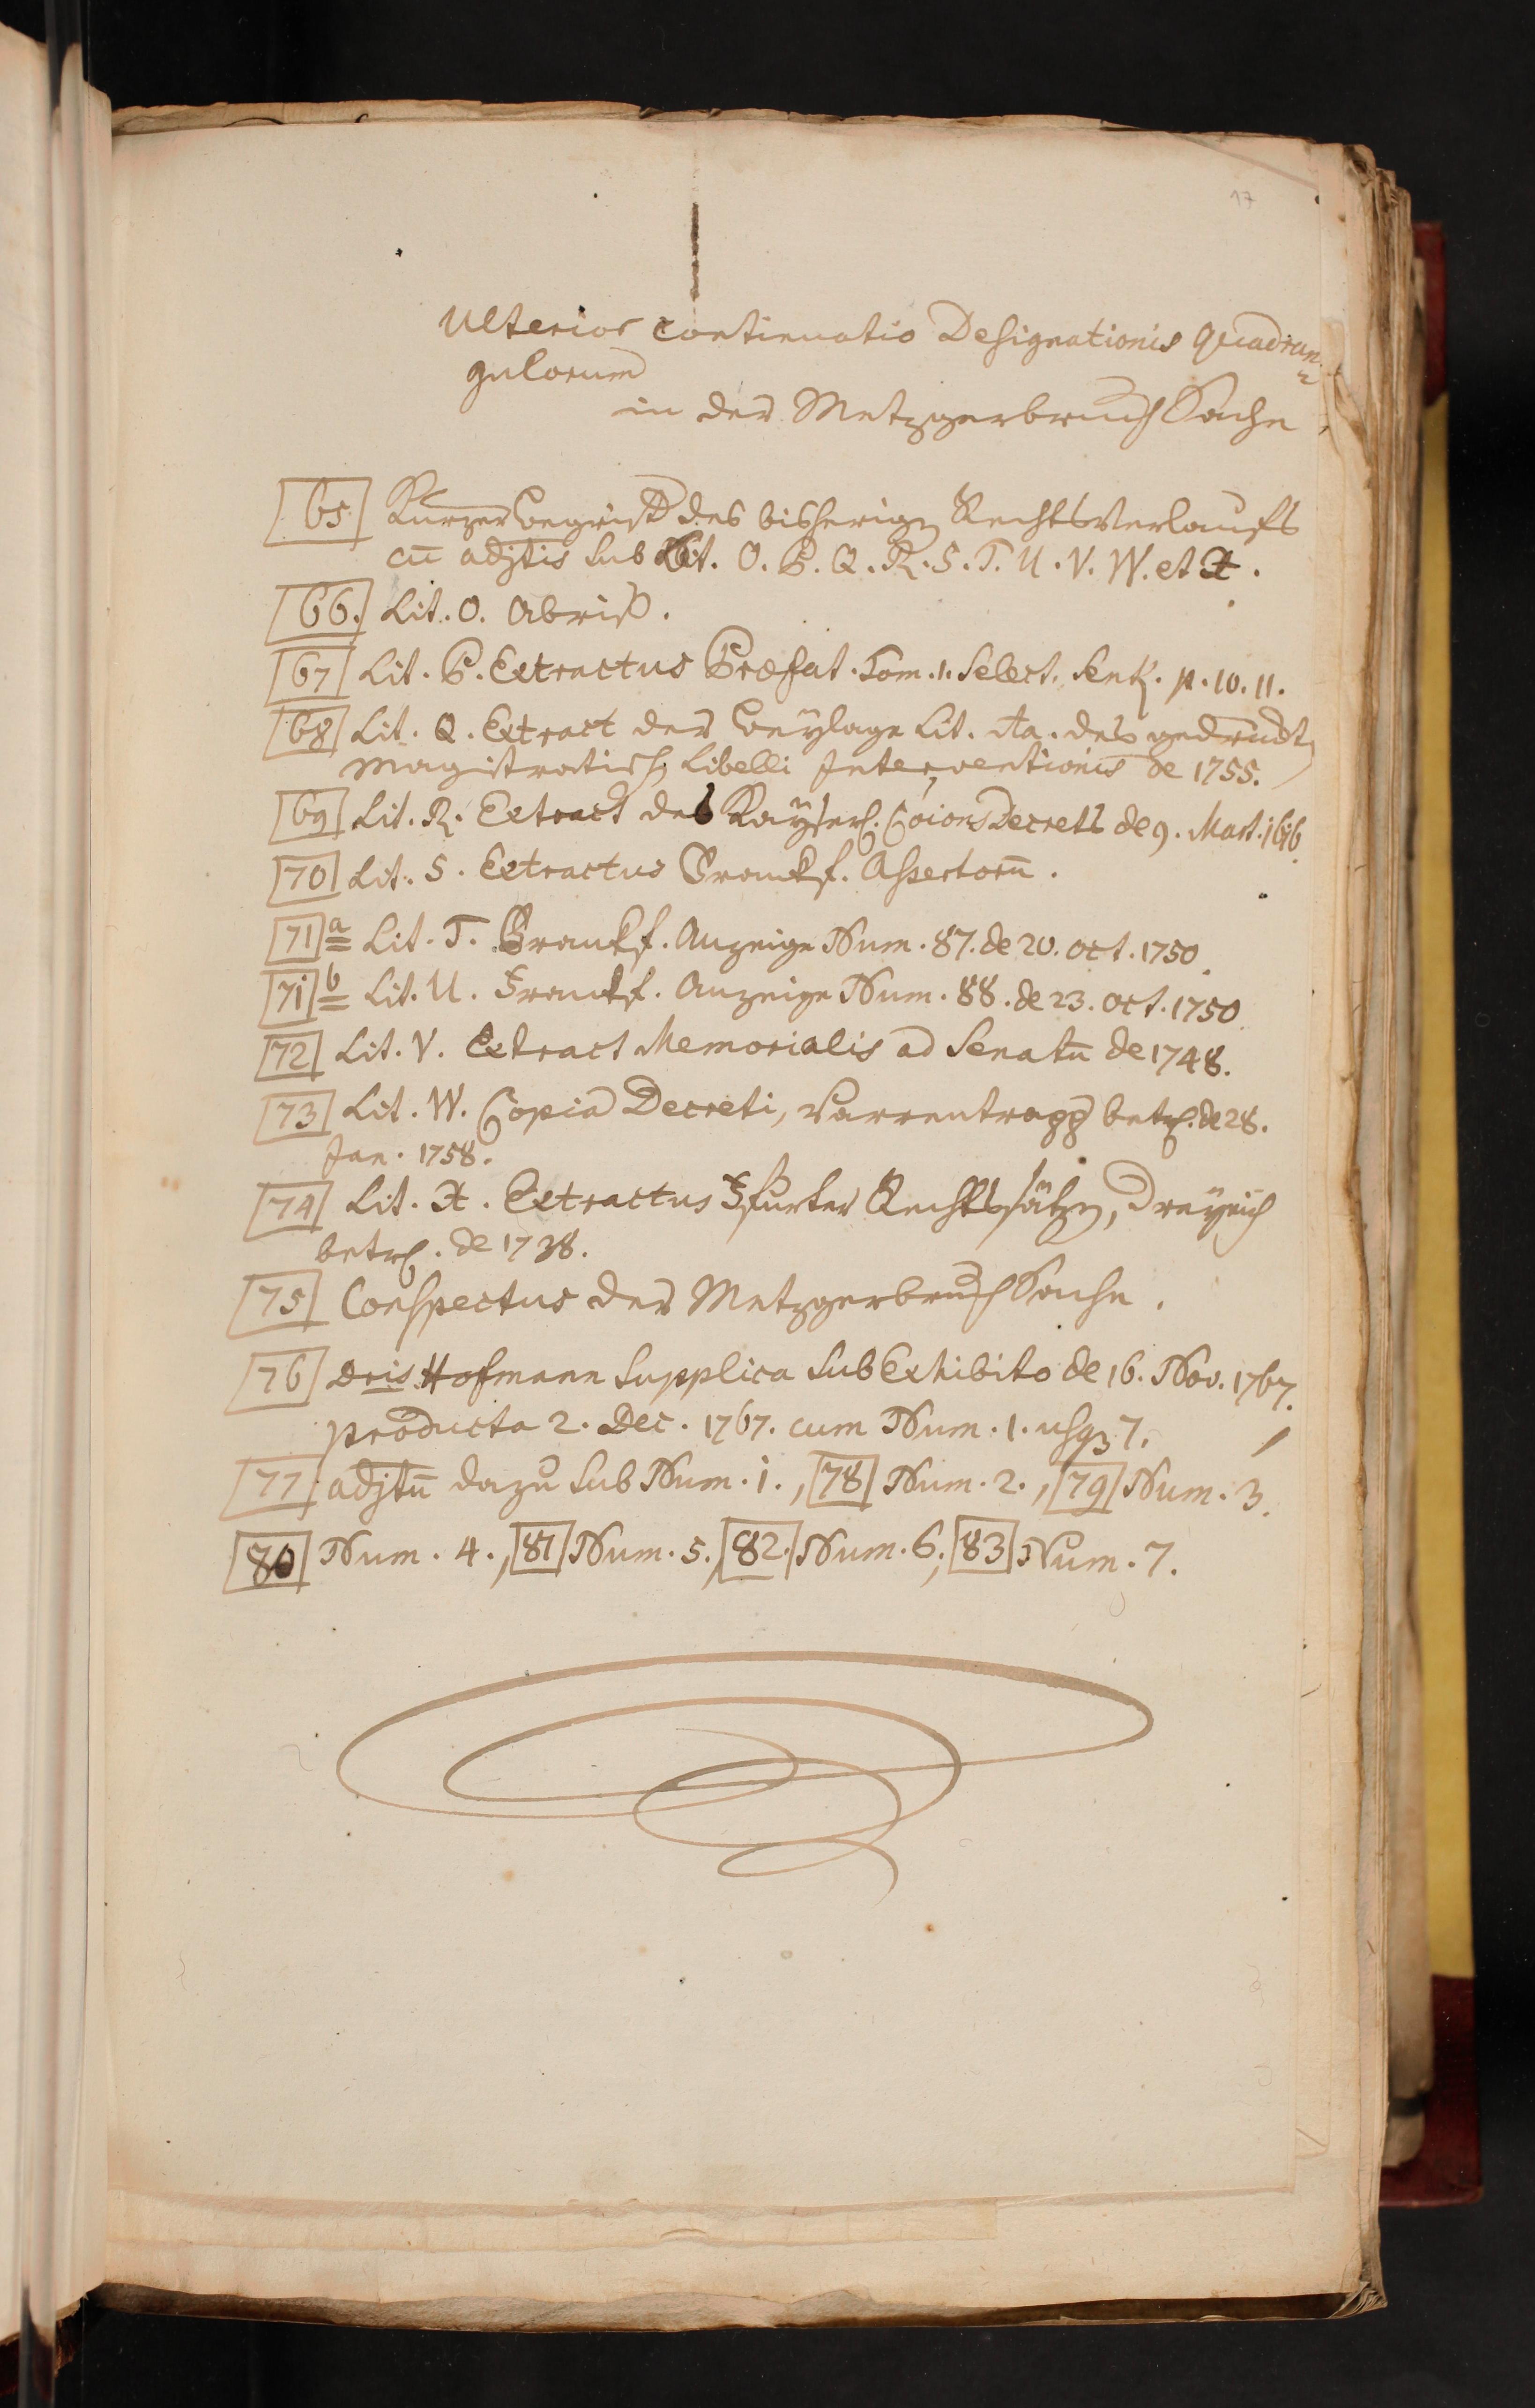 17
Ulterior Continuatio Designationis Quadran=
gulorum
in der Metzgerbruch Sache
65 Kurzer Begriff des bisherigen Rechtsverlaufs
cū adjtis sub Lit. O. P. Q. R. S. T. U. V. W. et X.
66. Lit. O. Abriß.
67 Lit. P. Extractus Præfat. Tom. 1. Select. Senk. p. 10. 11.
68 Lit. Q. Extract der Beylage Lit. Aa. des gedruckten
Magistratischen Libelli Interventionis de 1755.
69 Lit. R. Extract des Kayserl. Coions Decrets de 9. Mart. 1616.
70 Lit. S. Extractus Franckf. Assertorū.
71 a Lit. T. Franckf. Anzeige Num. 87. de 20. Oct. 1750.
71 b Lit. U. Franckf. Anzeige Num. 88. de 23. Oct. 1750.
72 Lit. V. Extract Memorialis ad Senatū de 1748.
73 Lit. W. Copia Decreti, Varrentrapp betrl. de 28.
Jan. 1758.
74 Lit. X. Extractus Ffurter Rechtssätzen, Dreyeich
betrl. de 1738.
75 Conspectus der Metzgerbruch Sache.
76 Dris Hofmann Supplica sub Exhibito de 16. Nov. 1767.
producta 2. Dec. 1767. cum Num. 1. usq3 7.
77 adjtū dazu sub Num. 1., 78 Num. 2., 79 Num. 3.
80 Num. 4., 81 Num. 5., 82. Num. 6., 83 Num. 7.